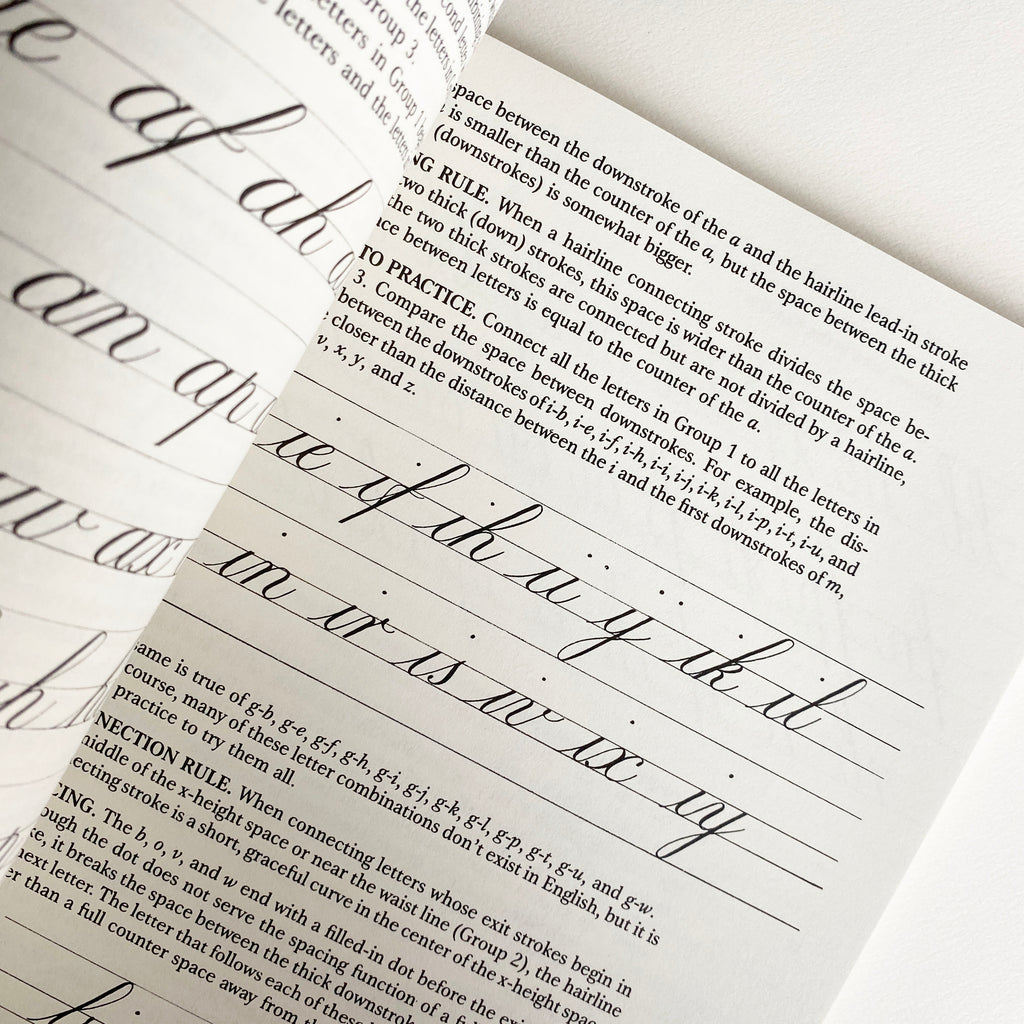 Group 3.
letters in Group 1
letters and the letters
af ah
an ap
w ax
space between the downstroke of the a and the hairline lead-in stroke
is smaller than the counter of the a, but the space between the thick
(downstrokes) is somewhat bigger.
RULE. When a hairline connecting stroke divides the space be-
two thick (down) strokes, this space is wider than the counter of the a.
the two thick strokes are connected but are not divided by a hairline,
between letters is equal to the counter of the a.
TO PRACTICE. Connect all the letters in Group 1 to all the letters in
3. Compare the space between downstrokes. For example, the dis-
between the downstrokes of i-b, i-e, i-f, i-h, i-i, i-j, i-k, i-l, i-p, i-t, i-u, and
closer than the distance between the i and the first downstrokes of m,
v, x, y, and z.
ie if ih ii ij ik il
in ir is iv ix iy
same is true of g-b, g-e, g-f, g-h, g-i, g-j, g-k, g-l, g-p, g-t, g-u, and g-w.
course, many of these letter combinations don't exist in English, but it is
practice to try them all.
RULE. When connecting letters whose exit strokes begin in
middle of the x-height space or near the waist line (Group 2), the hairline
stroke is a short, graceful curve in the center of the x-height space
The b, o, v, and w end with a filled-in dot before the
the dot does not serve the spacing function of a
it breaks the space between the thick
next letter. The letter that follows each of these
than a full counter space away from